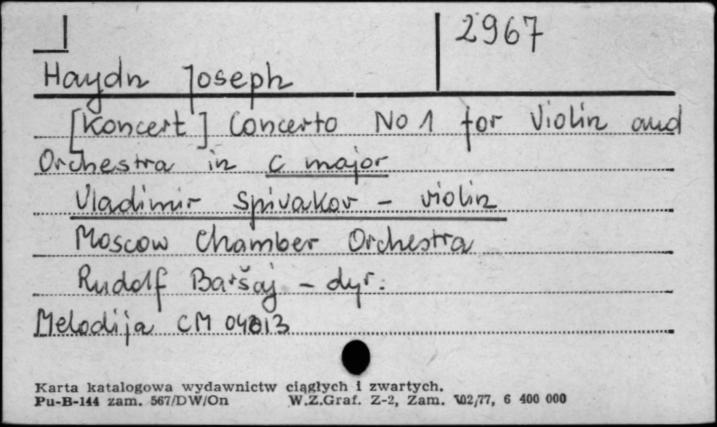 2967
Haydn Joseph
[Koncert] Concerto No 1 for Violin and
Orchestra in C major
Vladimir Spivakov - violin
Moscow Chamber Orchestra
Rudolf Baršaj - dyr.
Melodija CM 04813
Karta katalogowa wydawnictw ciągłych i zwartych.
Pu-B-144 zam. 567/DW/On W.Z.Graf. Z-2, Zam. 102/77, 6 400 000